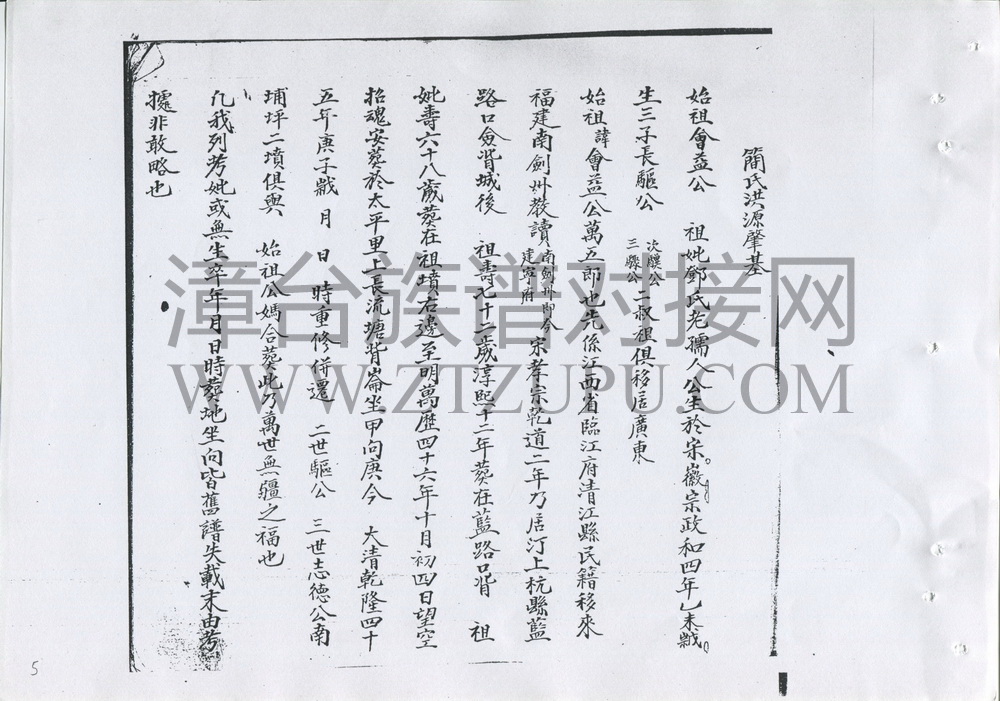 簡氏洪源肇基
始祖會益公 祖妣鄧氏老孺人公生於宋徽宗政和四年乙未歲
生三子長驅公 次驥公 三驟公 二叔祖俱移居廣東
始祖諱會益公萬五郎也先係江西省臨江府清江縣民籍移來
福建南劍州教讀 南劍州即今 建寧府 宋孝宗乾道二年乃居汀上杭縣藍
路口僉背城後 祖壽七十二歲淳熙十二年葬在藍路口背 祖
妣壽六十八歲葬在祖墳右邊至明萬歷四十六年十月初四日望空
招魂安葬於太平里上長流塘背崙坐甲向庚今 大清乾隆四十
五年庚子歲 月 日 時重修併遷 二世驅公 三世志德公南
埔坪二墳俱與 始祖公媽合葬此乃萬世無疆之福也
凡我列考妣或無生卒年月日時葬地坐向皆舊譜失載末由考
據非敢略也
漳台族谱对接网
WWW.ZTZUPU.COM
5